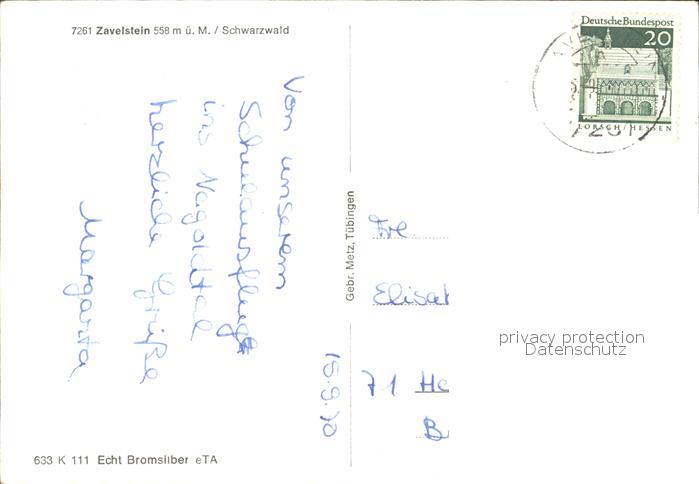 7261 Zavelstein 558 m ü. M. / Schwarzwald
Deutsche Bundespost
20
LORSCH/HESSEN
Von unserem
Schulausflug
ins Nagoldtal
herzliche Grüße
Margarita
15.9.70
Gebr. Metz, Tübingen
Frl.
Elisab
71 He
B
privacy protection
Datenschutz
633 K 111 Echt Bromsilber eTA